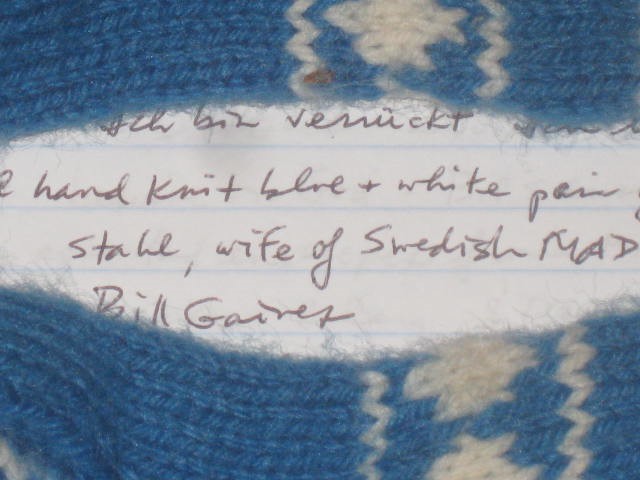 Ich bin verrückt
hand knit blue + white pair
Stahl, wife of Swedish MAD
Bill Gaines